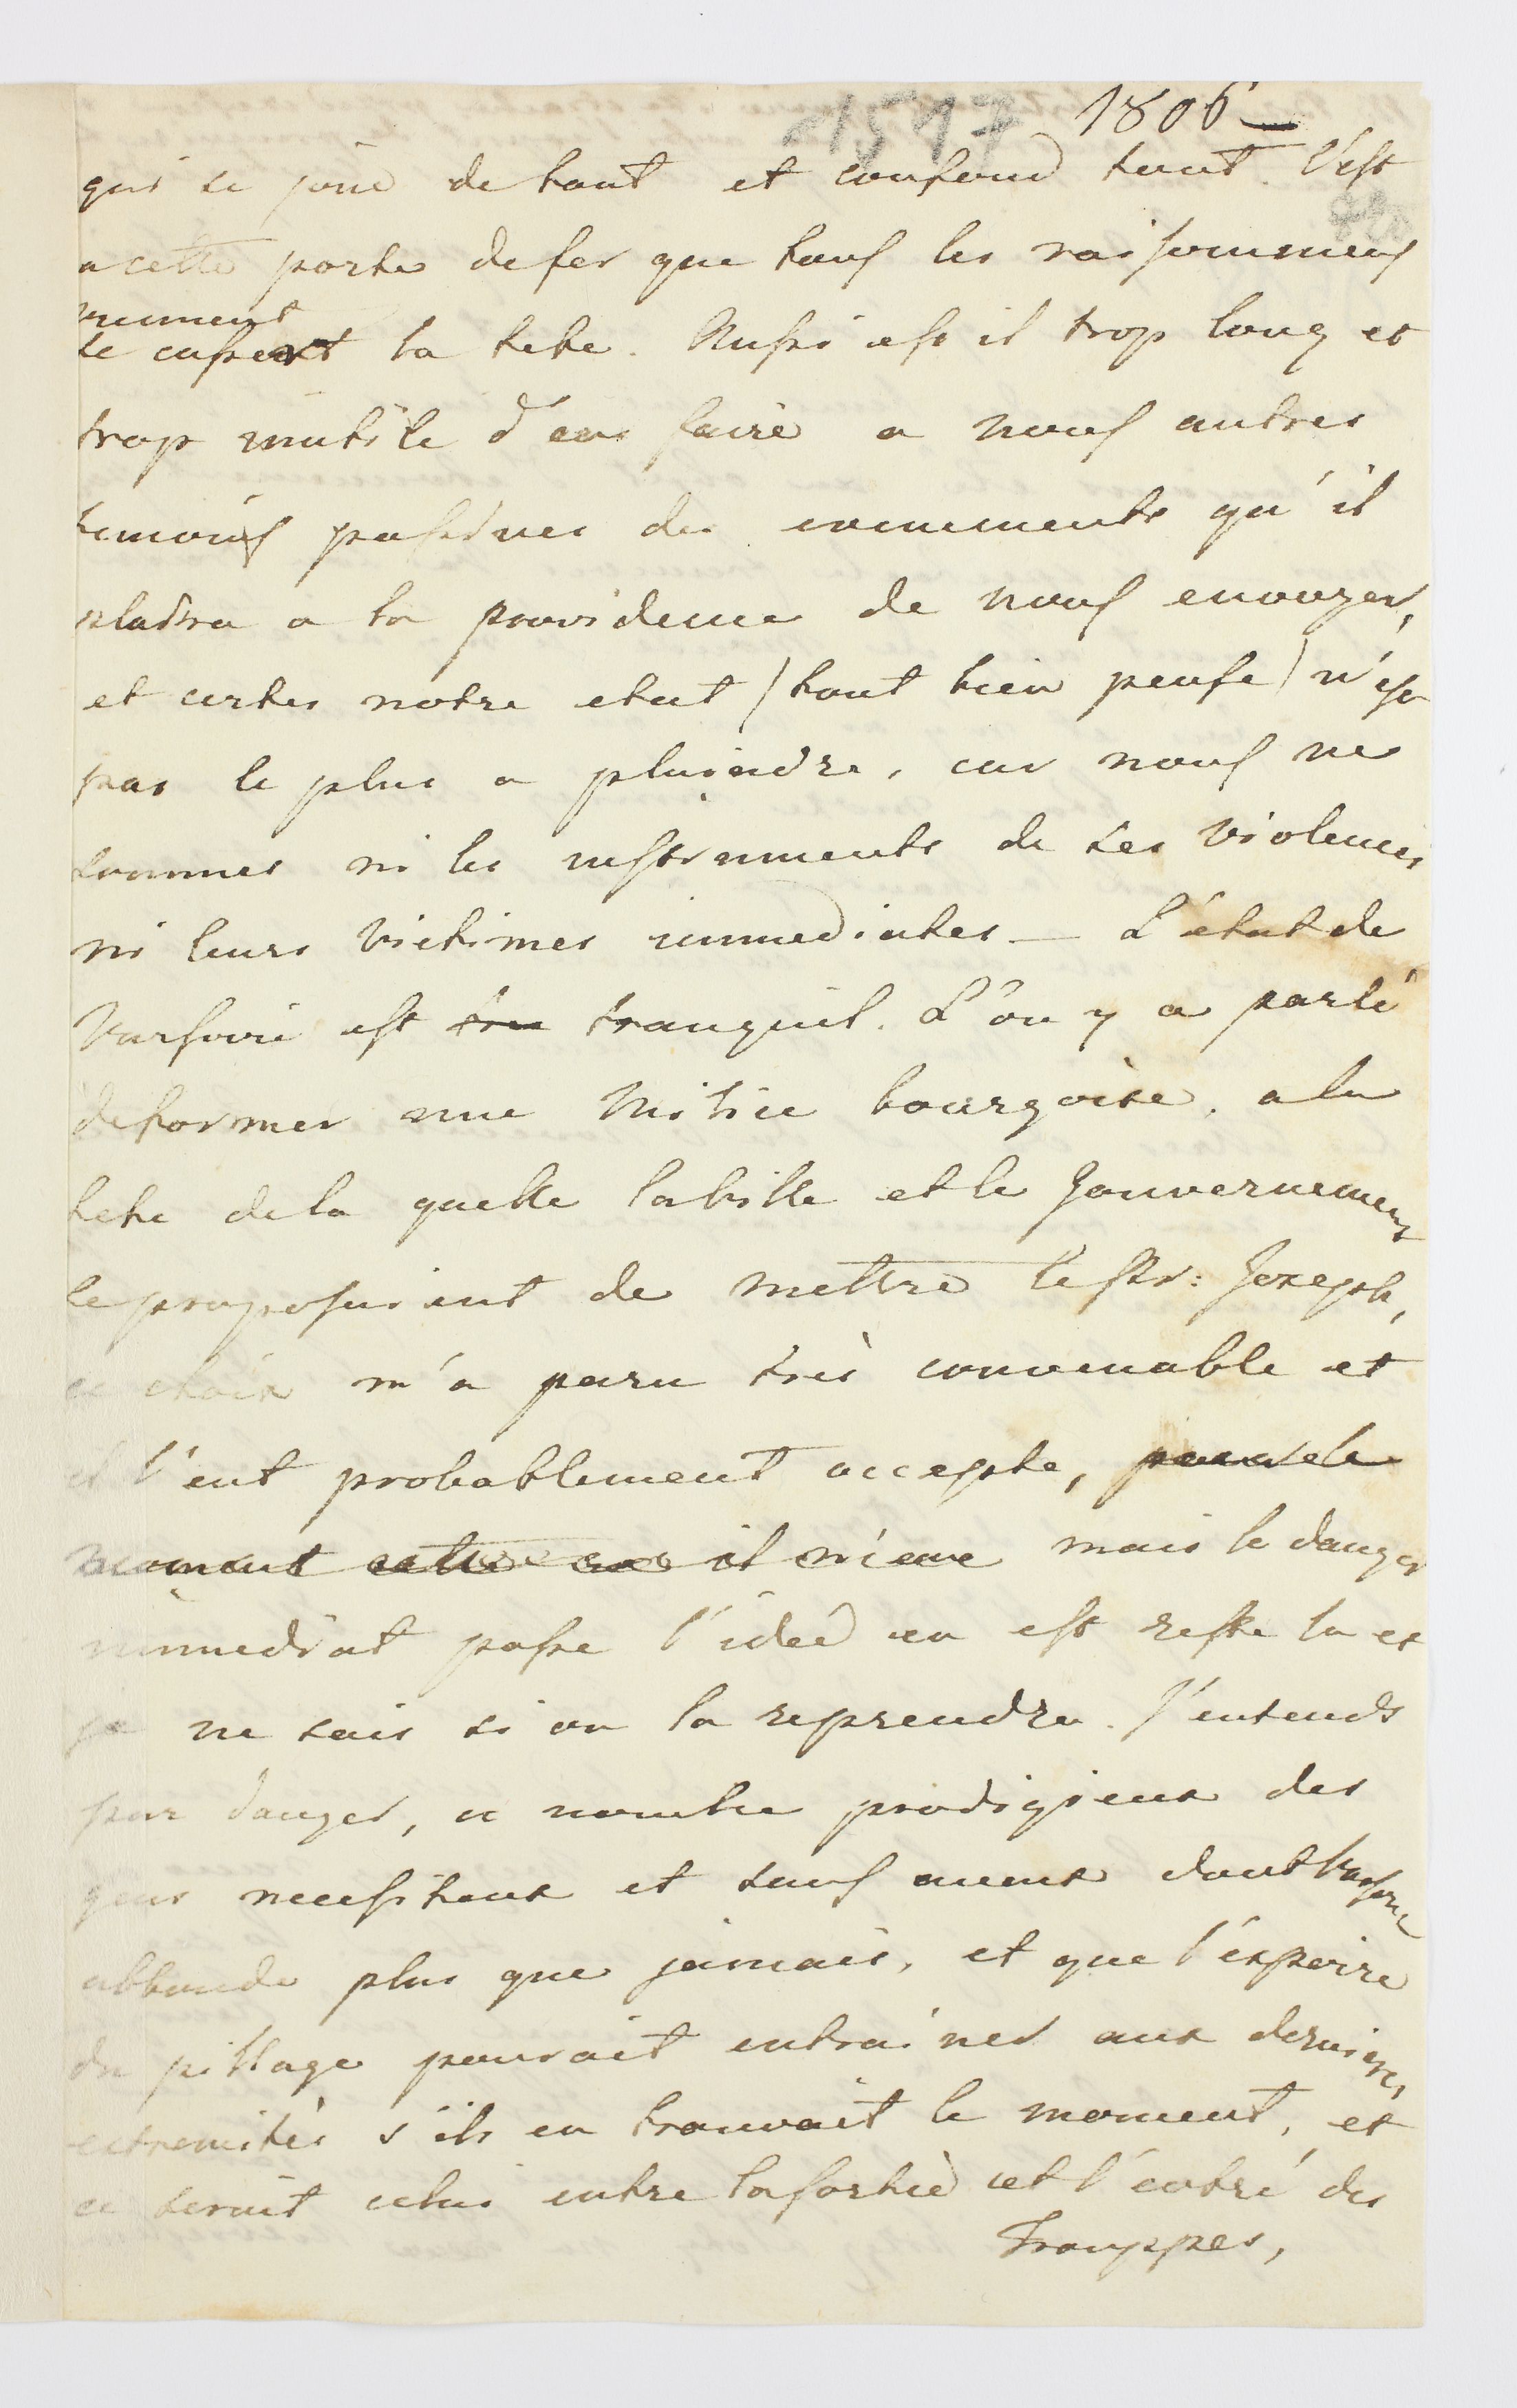 1517 1806
qui se joue de tout et confond tout. C'est
a cette porte de fer que tous les raisonnemens
viennent
se casser la tete. Aussi est il trop long et
trop inutile d'en faire a nous autres
temoins passives des evenements qu'il
plaira a la providence de nous envoyer,
et certes notre etat (tout bien pensé) n'est
pas le plus a plaindre, car nous ne
sommes ni les instruments de ses violences
ni leurs victimes immediates — L'état de
Varsovie est tranquil. L'on y a parlé
deformer une Milice bourgoise, a la
tete dela quelle la ville et le Gouvernement
se proposaient de mettre le Pr: Joseph,
ce choix m'a paru très convenable et
il l'eut probablement accepte,
moment cette il m'eme mais le danger
immediat passe l'ideé en est reste la et
je ne sais si on la reprendra. J'entends
par danger, ce nombre prodigieux des
gens necessiteux et sans aveux dont Varsovie
abbonde plus que jamais, et que l'espoire
du pillage pourait entrainer aux dernieres
extremités s'ils en trouvait le moment, et
ce serait celui entre la sortie et l'entré des
Trouppes,